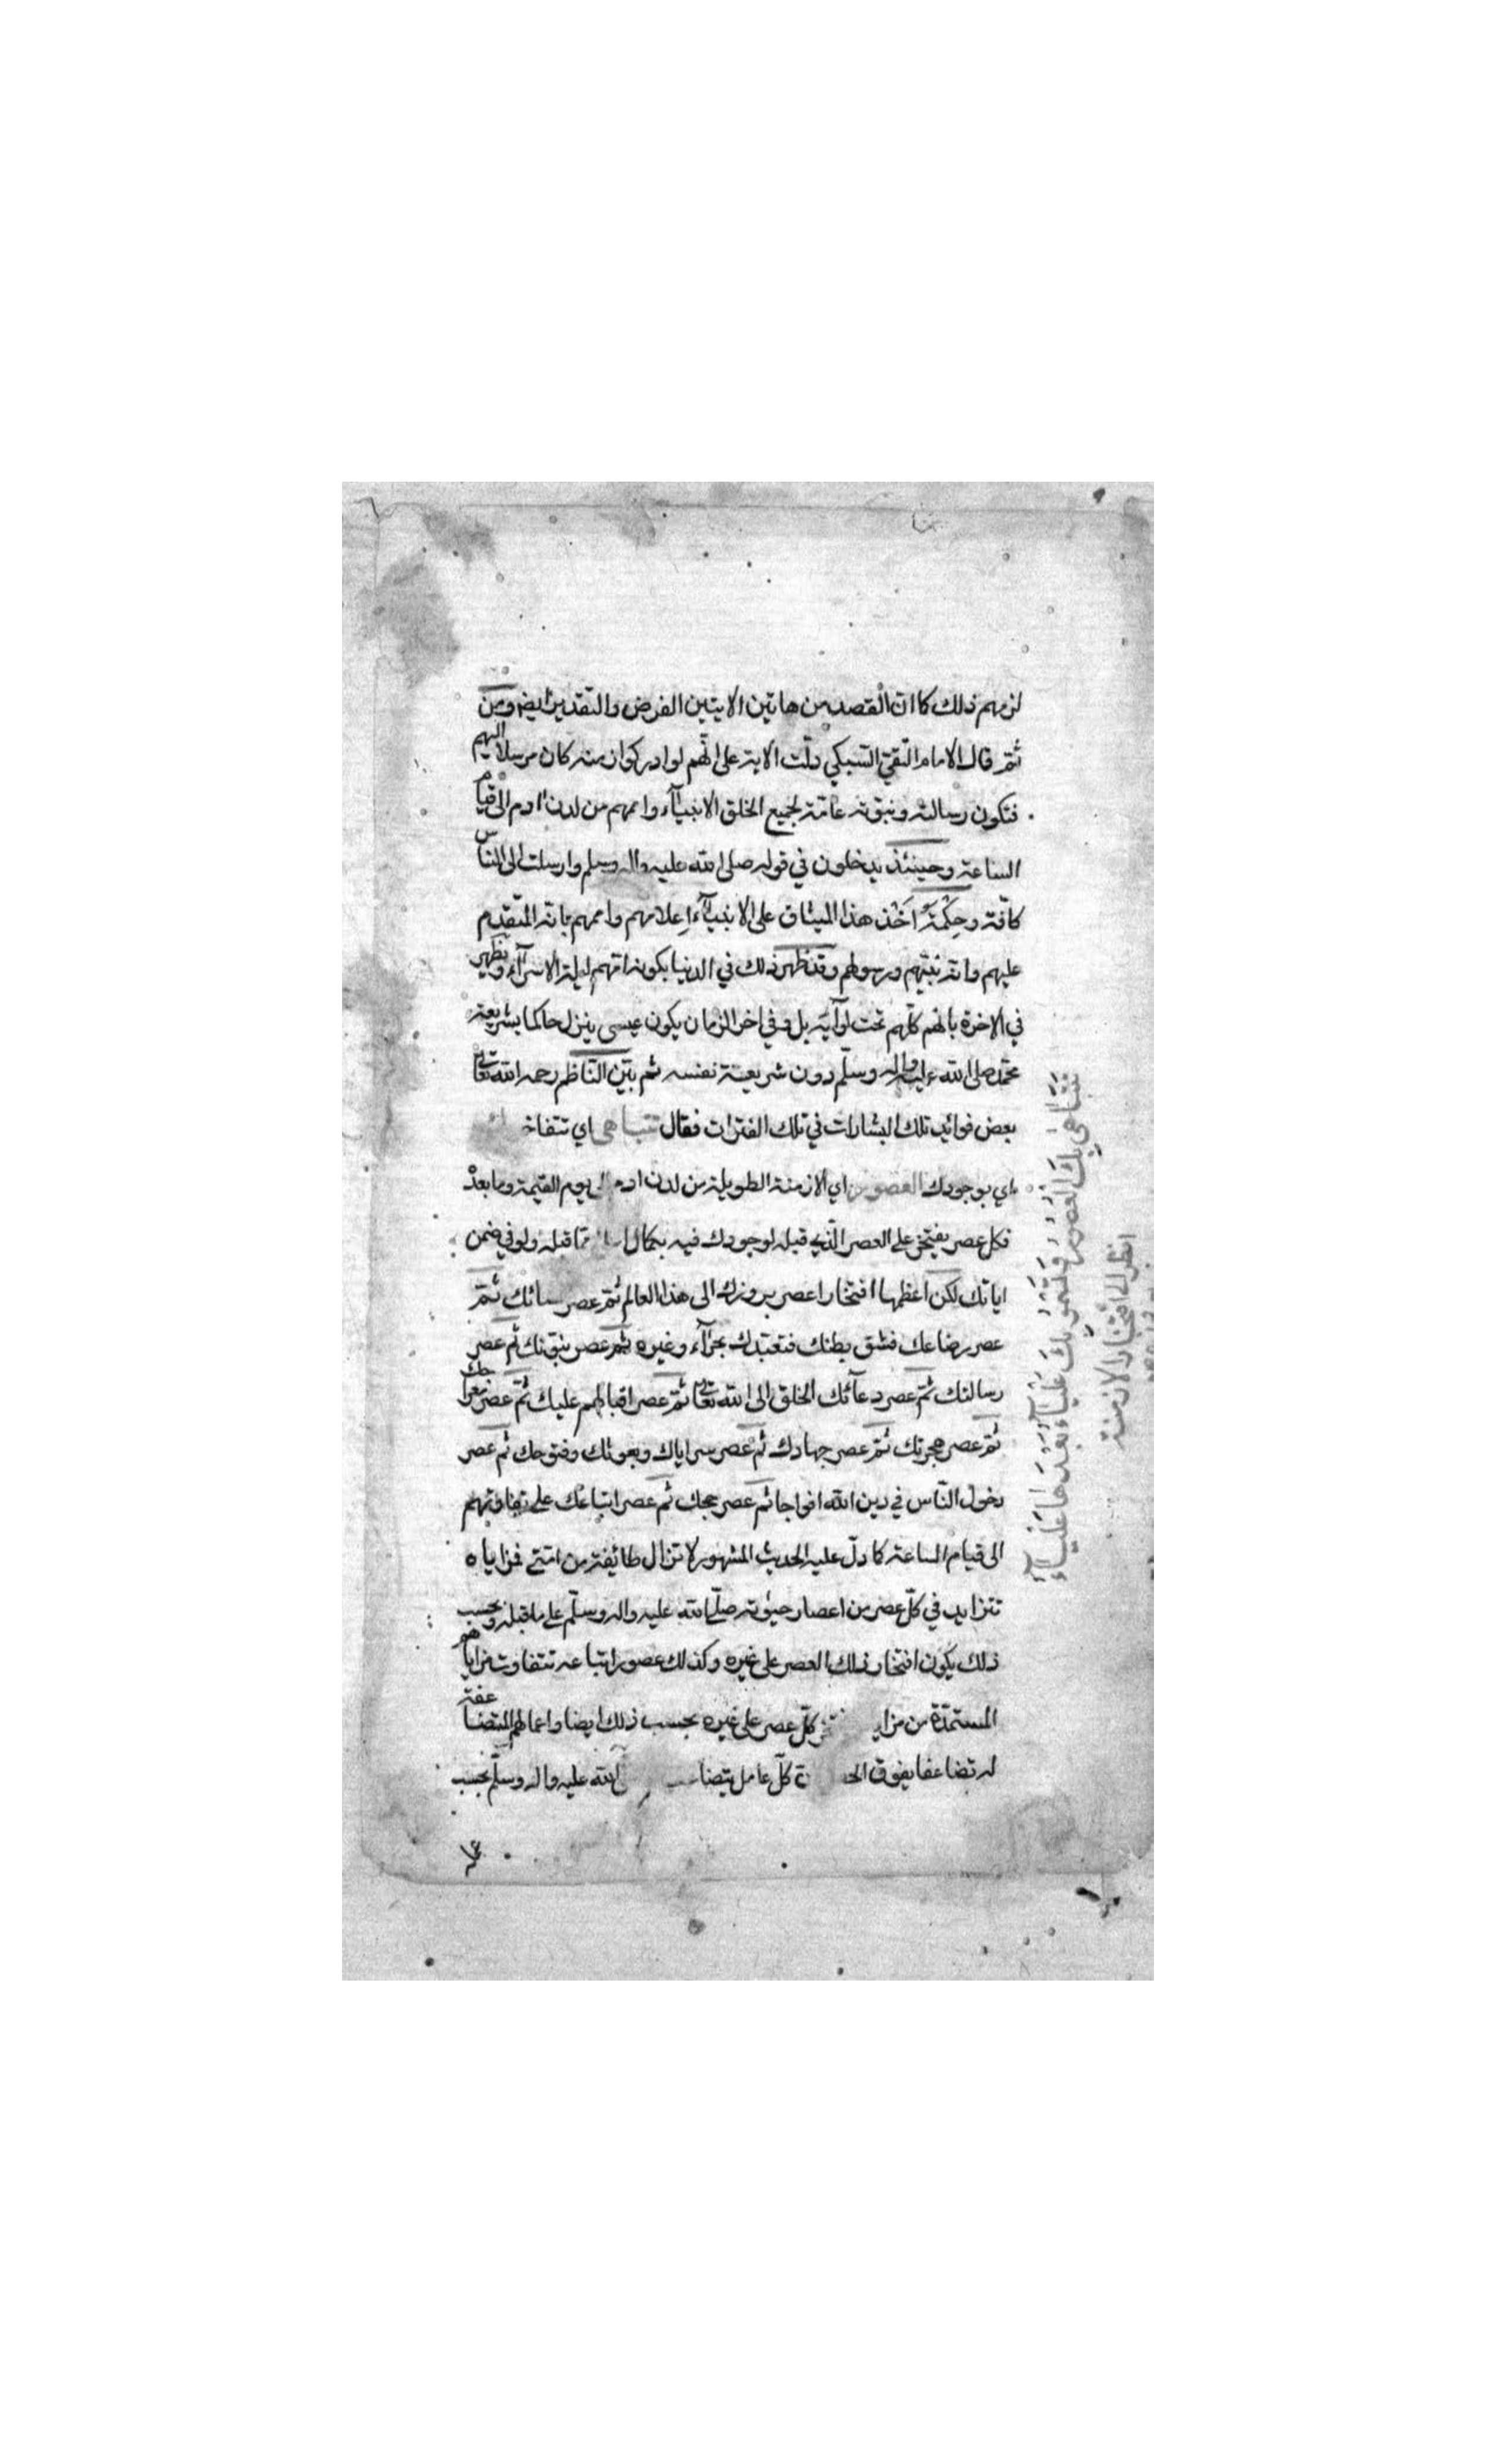 لزمهم ذلك كما ان القصد من هاتين الايتين الفرض والتقدير ايضا ومن
ثم قال الامام التقي السبكي دلت الاية على انهم لو ادركوا زمنه كان مرسلا اليهم
فتكون رسالته ونبوته عامة لجميع الخلق الانبيآء واممهم من لدن ادم الى قيام
الساعة وحينئذ يدخلون في قوله صلى الله عليه واله وسلم وارسلت الى الناس
كافة وحكمة اخذ هذا الميثاق على الانبيآء اعلامهم واممهم بانه المتقدم
عليهم وانه نبيهم ورسولهم وقد ظهر ذلك في الدنيا بكونه امهم ليلة الاسرآء ويظهر
في الاخرة بانهم كلهم تحت لوآئه بل وفي اخر الزمان يكون عيسى ينزل حاكما بشريعة
محمد صلى الله عليه واله وسلم دون شريعة نفسه ثم بين الناظم رحمه الله تعالى
بعض فوائد تلك البشارات في تلك الفترات فقال تتباهى اي تتفاخر
اي بوجودك العصور اي الازمنة الطويلة من لدن ادم الى يوم القيمة وما بعده
فكل عصر يفتخر على العصر الذي قبله لوجودك فيه بكمال مما قبله ولو في ضمن
ابائك لكن اعظمها افتخارا عصر بروزك الى هذا العالم ثم عصر ثم
عصر رضاعك فشق بطنك فتعبدك بحرآء وغيره ثم عصر نبوتك ثم عصر
رسالتك ثم عصر دعآئك الخلق الى الله تعالى ثم عصر اقبالهم عليك ثم عصر معراجك
ثم عصر هجرتك ثم عصر جهادك ثم عصر سراياك وبعوثك وفتوحك ثم عصر
دخول الناس في دين الله افواجا ثم عصر حجك ثم عصر اتباعك على تفاوتهم
الى قيام الساعة كما دل عليه الحديث المشهور لا تزال طائفة من امتي فمزاياه
تتزايد في كل عصر من اعصار حيوته صلى الله عليه واله وسلم على ما قبله وبحسب
ذلك يكون افتخار ذلك العصر على غيره وكذلك عصور اتباعه تتفاوت مزاياهم
المستمدة من كل عصر على غيره بحسب ذلك ايضا واعمالهم المتضاعفة
له تضاعفا يفوق كل عامل يتضاعف الله عليه واله وسلم بحسب
تتباهى بك العصور وتسمو بك علياء بعدها علياء
انظر الى افتخار الازمنة